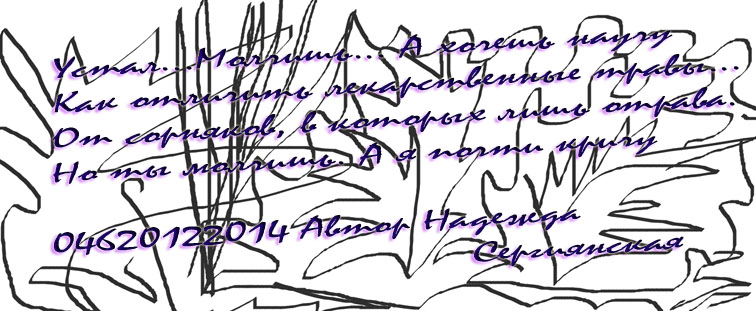 Устал...Молчишь... А хочешь научу
Как отличить лекарственные травы...
От сорняков, в которых лишь отрава.
Но ты молчишь. А я почти кричу
04620122014 Автор Надежда
Сергиянская